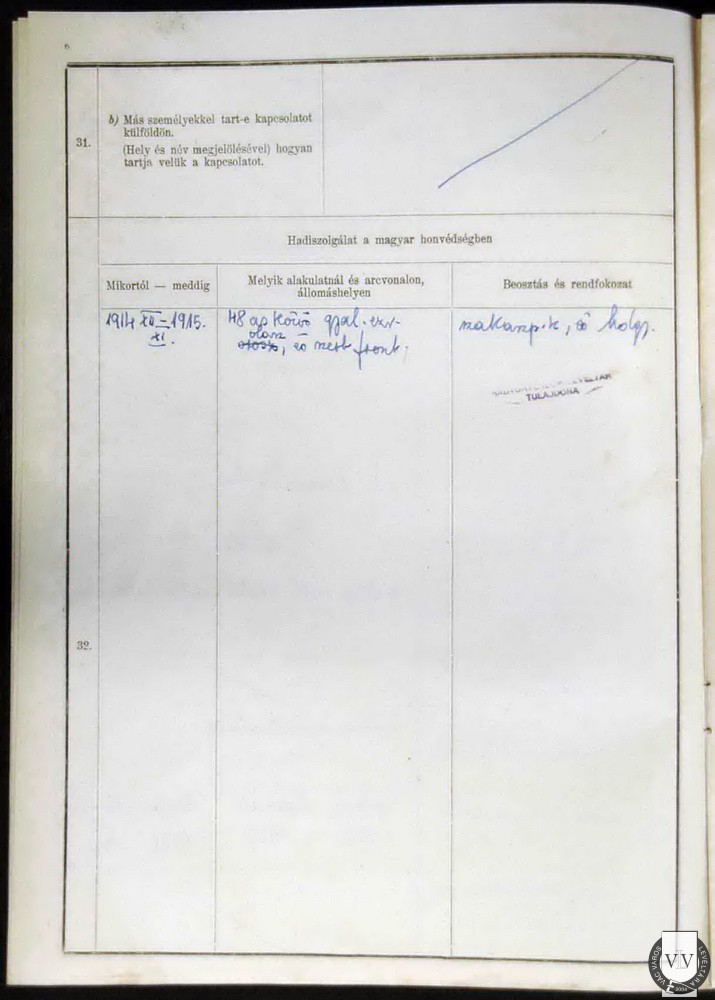 6
31.
b) Más személyekkel tart-e kapcsolatot
külföldön.
(Hely és név megjelölésével) hogyan
tartja velük a kapcsolatot.
Hadiszolgálat a magyar honvédségben
Mikortól — meddig
Melyik alakulatnál és arcvonalon,
állomáshelyen
Beosztás és rendfokozat
1914 XII – 1915.
XI.
48 gyal. ezr.
olasz
, és szerb front,
szakaszp.k, és hdgy.
TULAJDONA
32.
VÁC VÁROS LEVÉLTÁRA
VLV